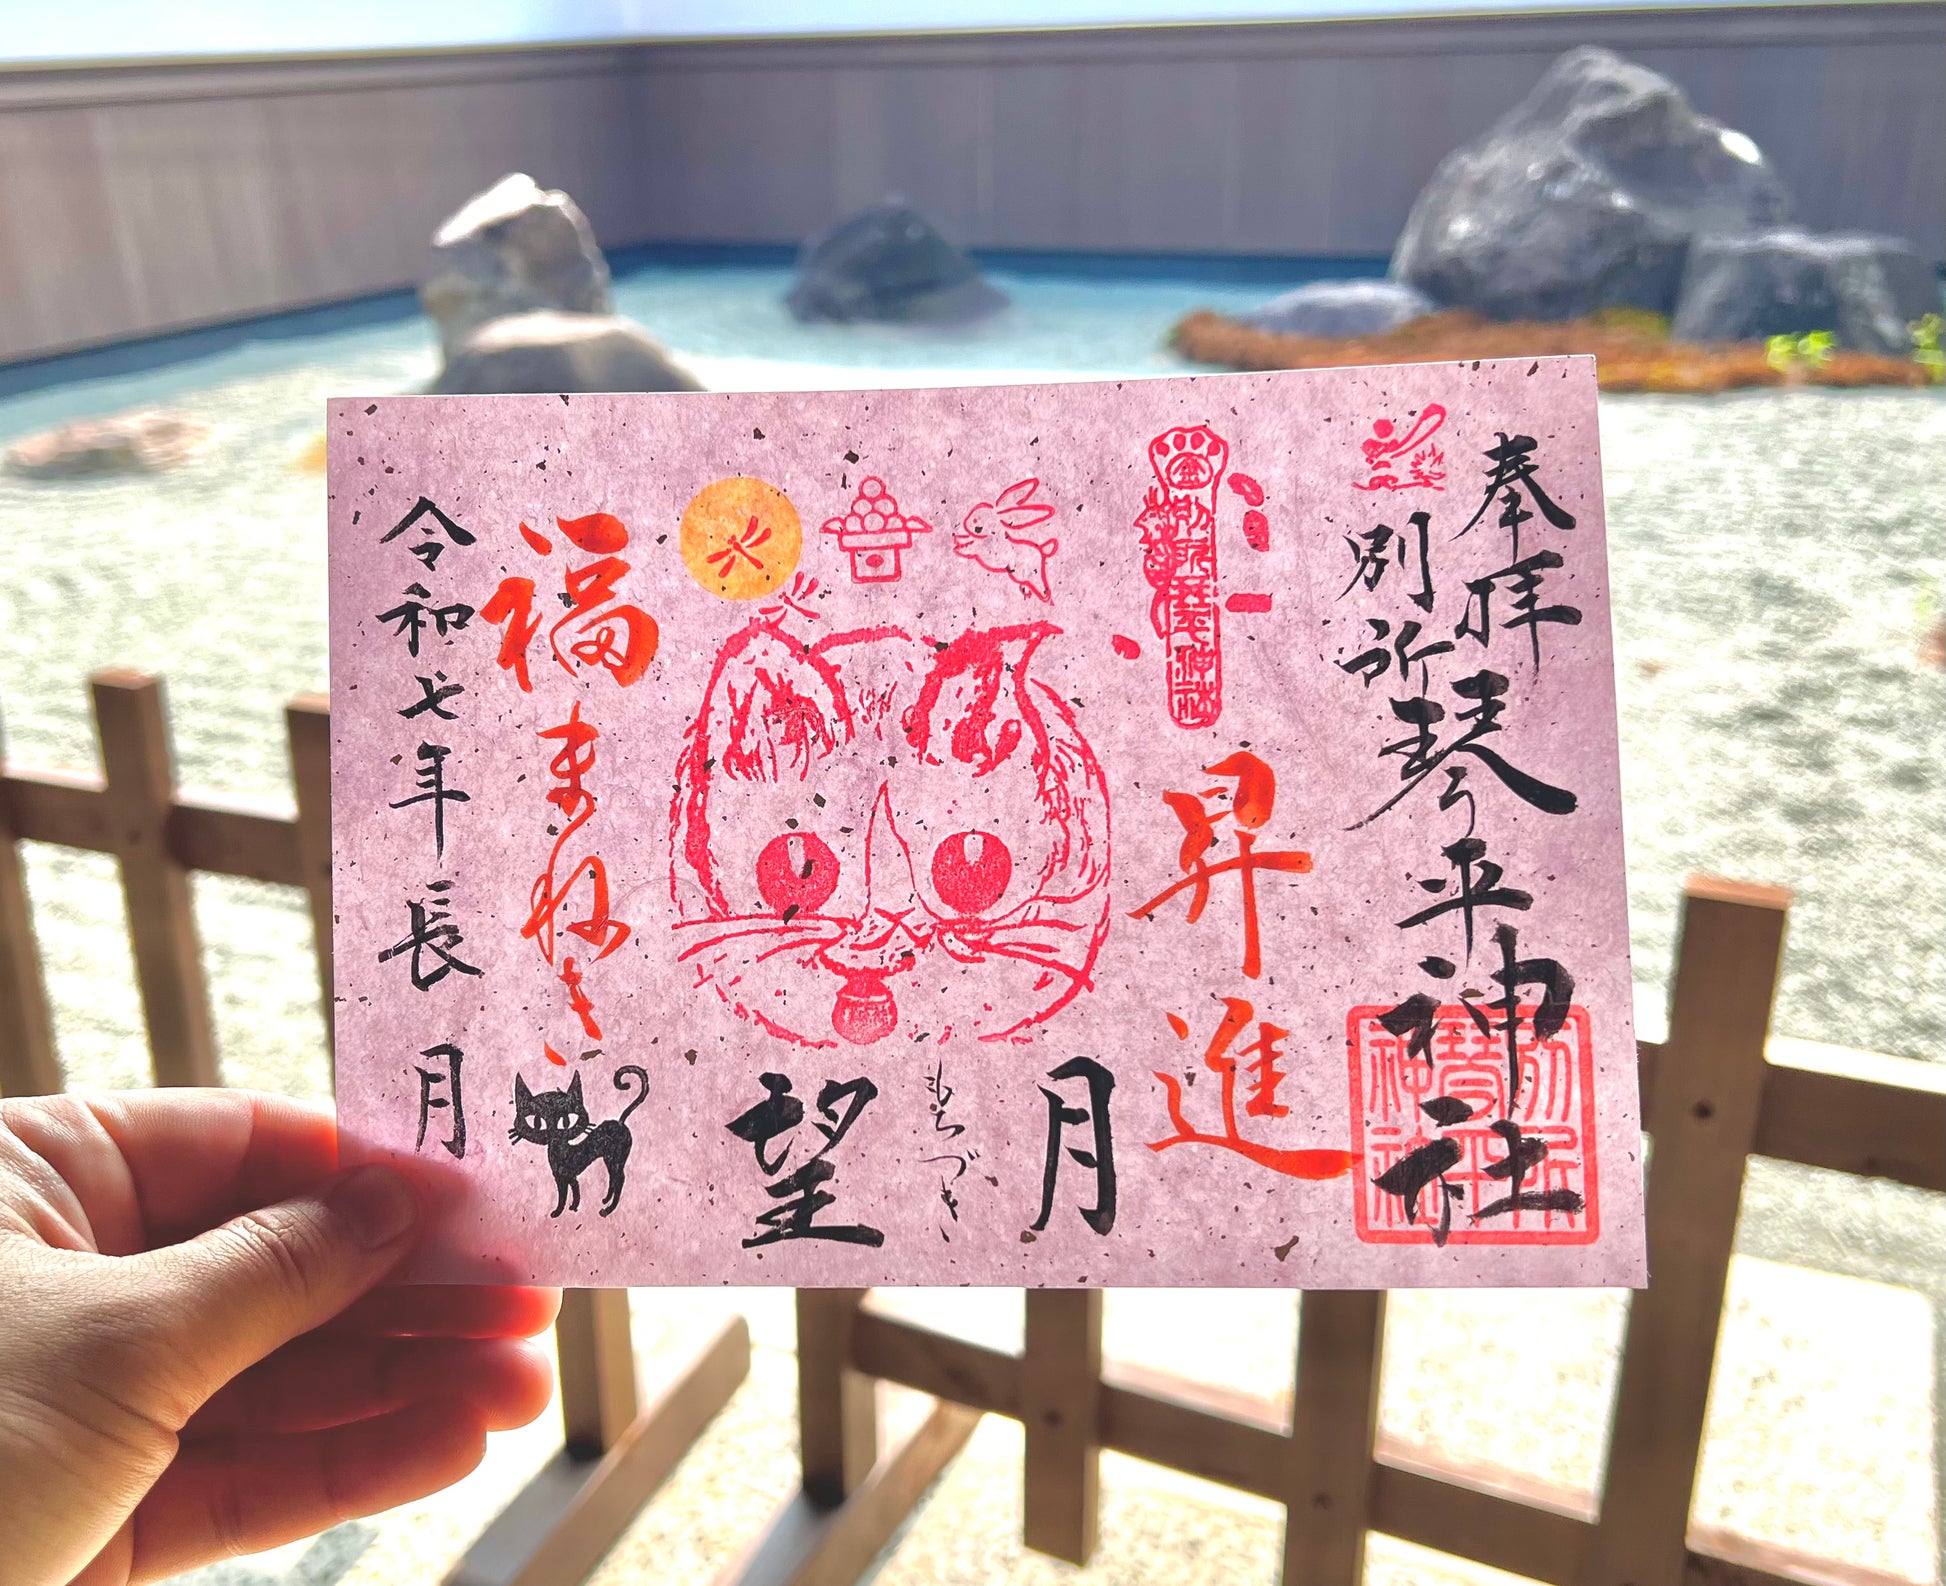 奉拝
別所琴平神社
金
別所琴平神社
昇進
月
もちづき
望
福まねき
令和七年長月
別所
琴平
神社